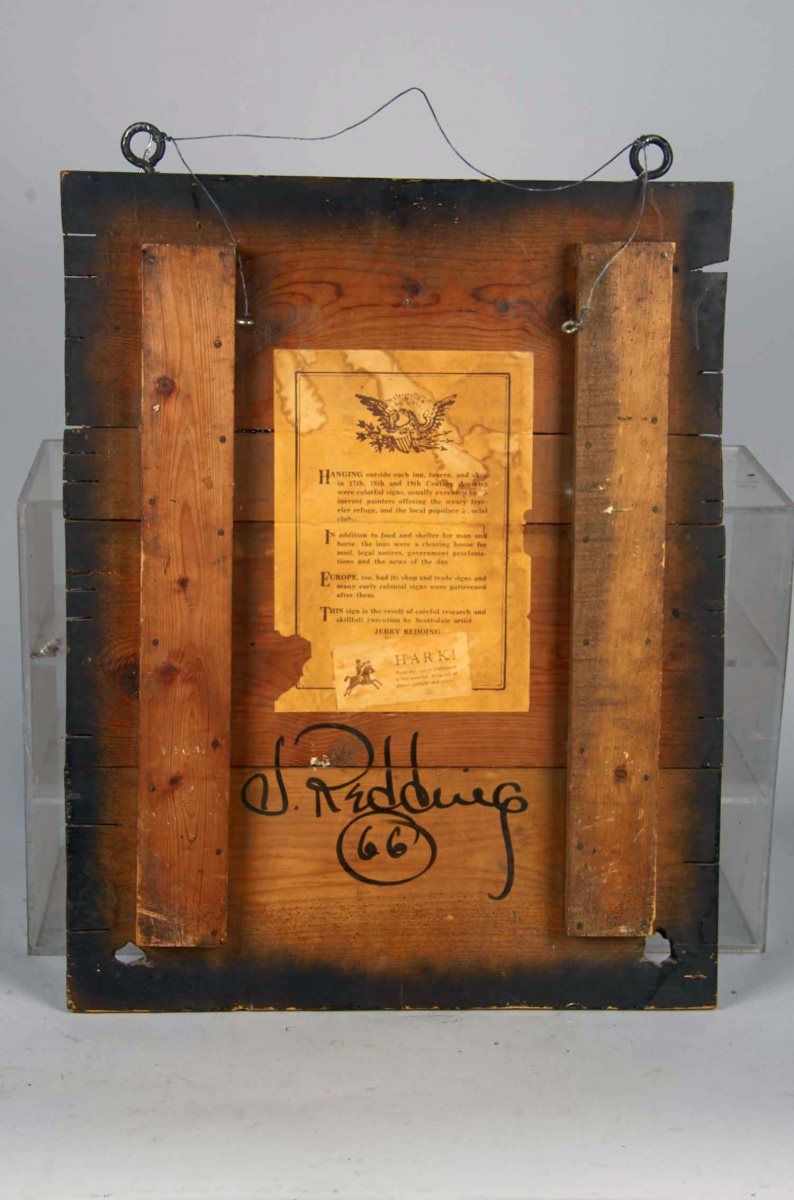 HANGING outside each inn, tavern, and shop
in 17th, 18th and 19th Century
were colorful signs, usually executed by
inerant painters offering the weary trav-
eler refuge, and the local populace social
club.
IN addition to food and shelter for man and
horse, the inns were a clearing house for
mail, legal notices, government proclama-
tions and the news of the day.
EUROPE, too, had its shop and trade signs and
many early colonial signs were patterened
after them.
THIS sign is the result of careful research and
skillfull execution by Scottsdale artist
JERRY REDDING
HARK!
J. Redding
66